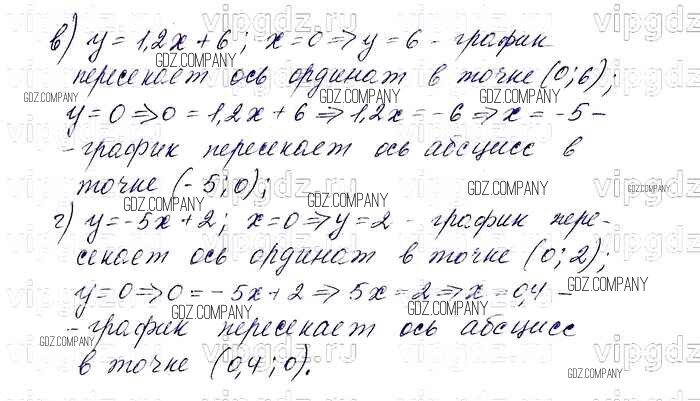 в) y = 1,2x + 6; x = 0 ⇒ y = 6 - график
пересекает ось ординат в точке (0; 6);
y = 0 ⇒ 0 = 1,2x + 6 ⇒ 1,2x = -6 ⇒ x = -5 -
- график пересекает ось абсцисс в
точке (-5; 0);
г) y = -5x + 2; x = 0 ⇒ y = 2 - график пере-
секает ось ординат в точке (0; 2);
y = 0 ⇒ 0 = -5x + 2 ⇒ 5x = 2 ⇒ x = 0,4 -
- график пересекает ось абсцисс
в точке (0,4; 0).